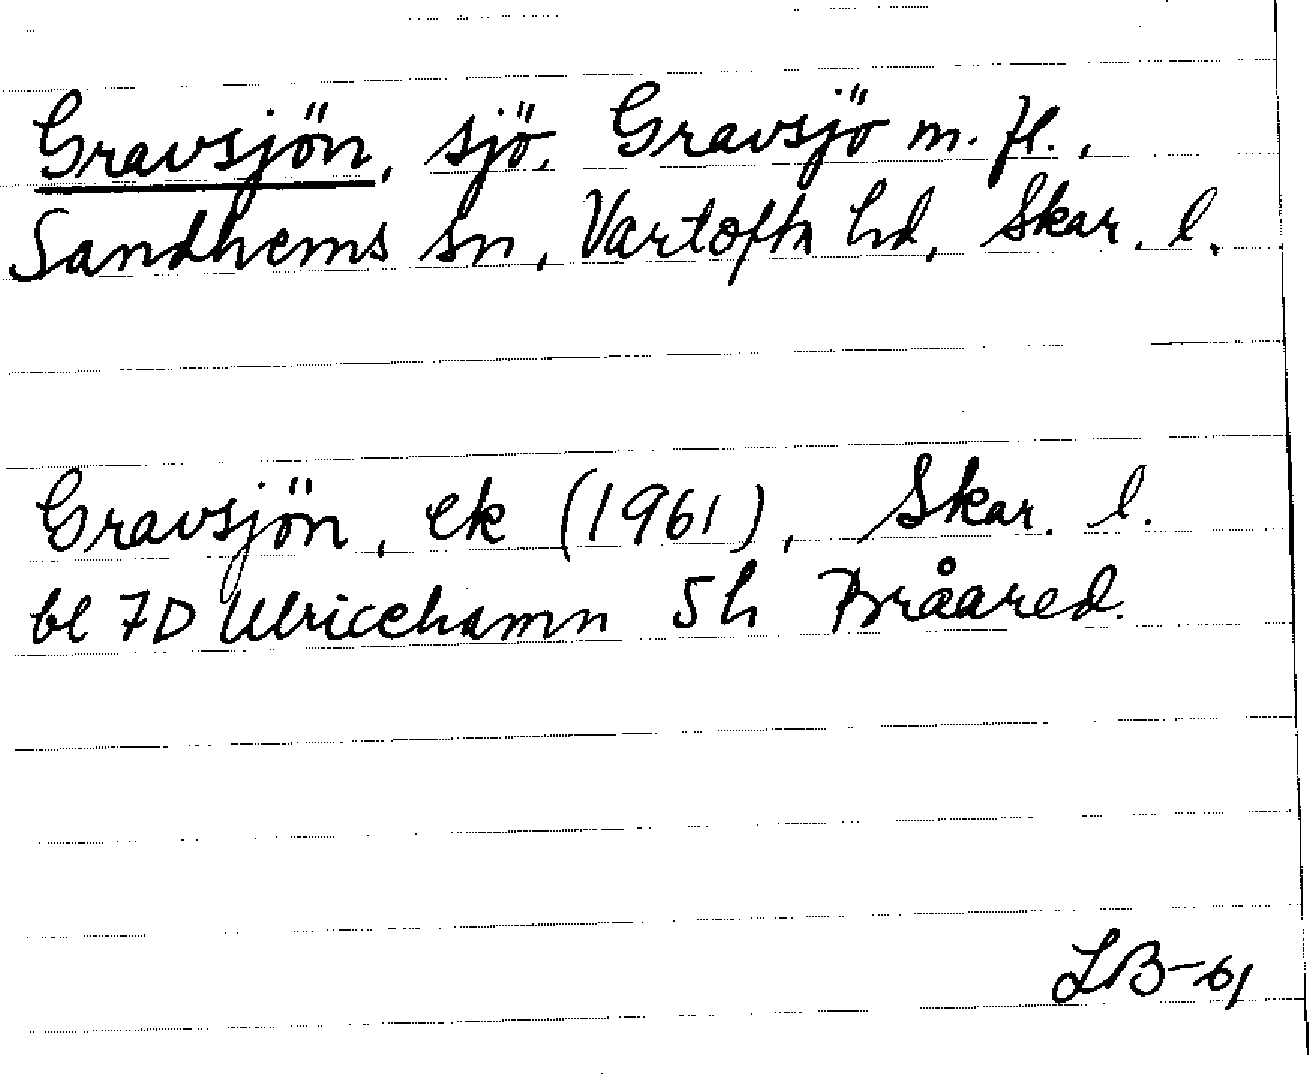 Gravsjön, sjö. Gravsjö m. fl.,
Sandhems sn, Vartofta hd, Skar. l.
Gravsjön, ek (1961), Skar. l.
bl 7D Ulricehamn 5h Bråared.
LB-61